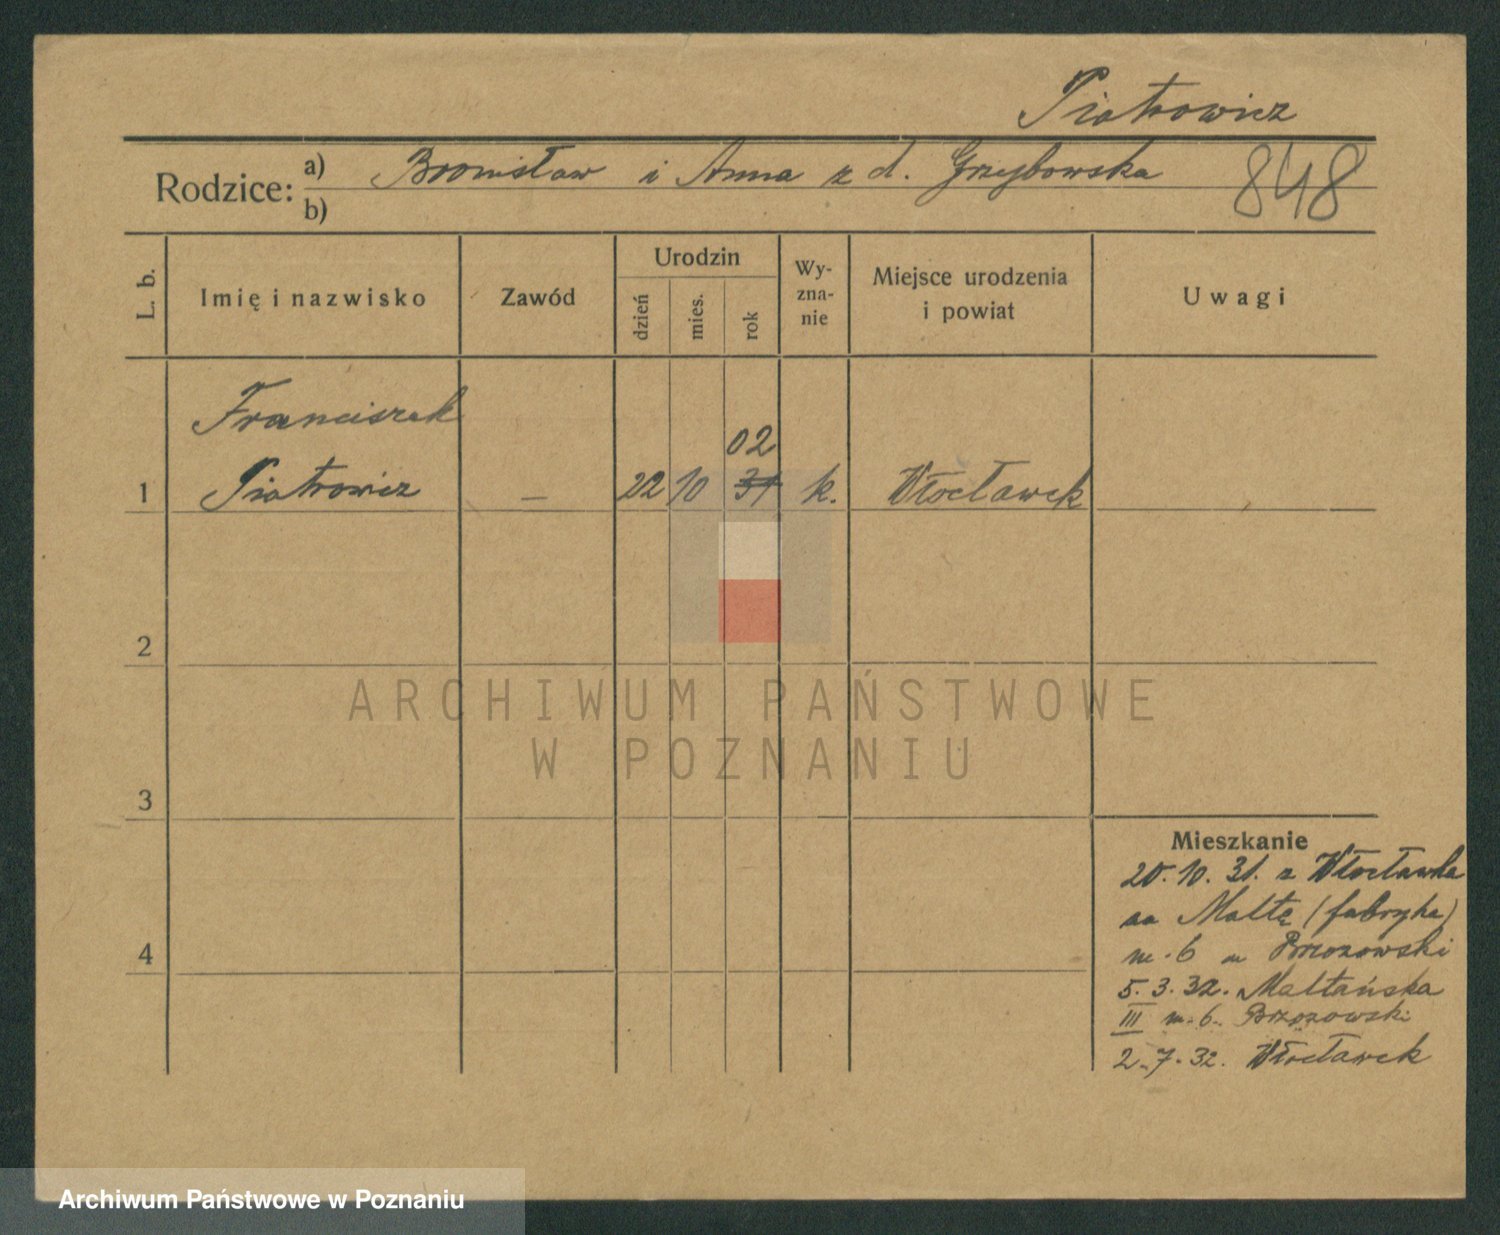 Piotrowicz
Rodzice: a) Bronisław i Anna z d. Grzybowska
b)
848
L. b.
Imię i nazwisko
Zawód
Urodzin
dzień
mies.
rok
Wy-
zna-
nie
Miejsce urodzenia
i powiat
Uwagi
Franciszek
02
1 Piotrowicz — 22 10 31 k. Włocławek
2
ARCHIWUM PAŃSTWOWE
W POZNANIU
3
Mieszkanie
20.10.31. z Włocławka
na Maltę (fabryka)
4
m. 6 Brzozowski
5.3.32. Maltańska
III m. 6. Brzozowski
2.7.32. Włocławek
Archiwum Państwowe w Poznaniu